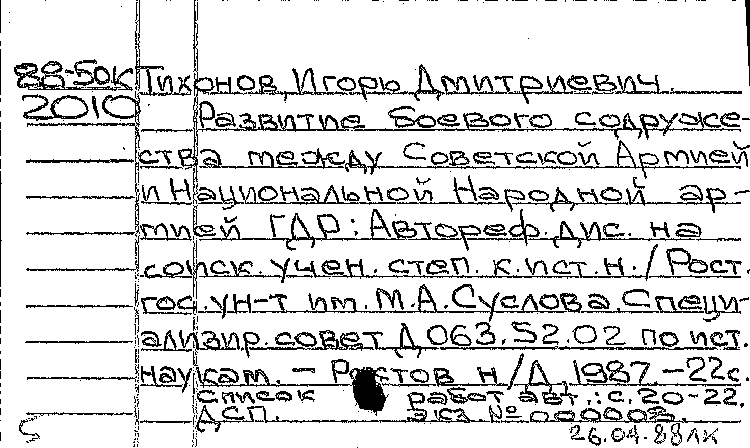 88-50к Тихонов, Игорь Дмитриевич.
2010 Развитие боевого содруже-
ства между Советской Армией
и Национальной Народной ар-
мией ГДР: Автореф. дис. на
соиск. учен. степ. к. ист. н. / Рост.
гос. ун-т им. М.А. Суслова. Специ-
ализир. совет Д 063.52.02 по ист.
наукам. - Ростов н/Д, 1987. - 22 с.
Список работ авт.: с. 20-22.
ДСП. экз. № 000003.
26.04.88 лк